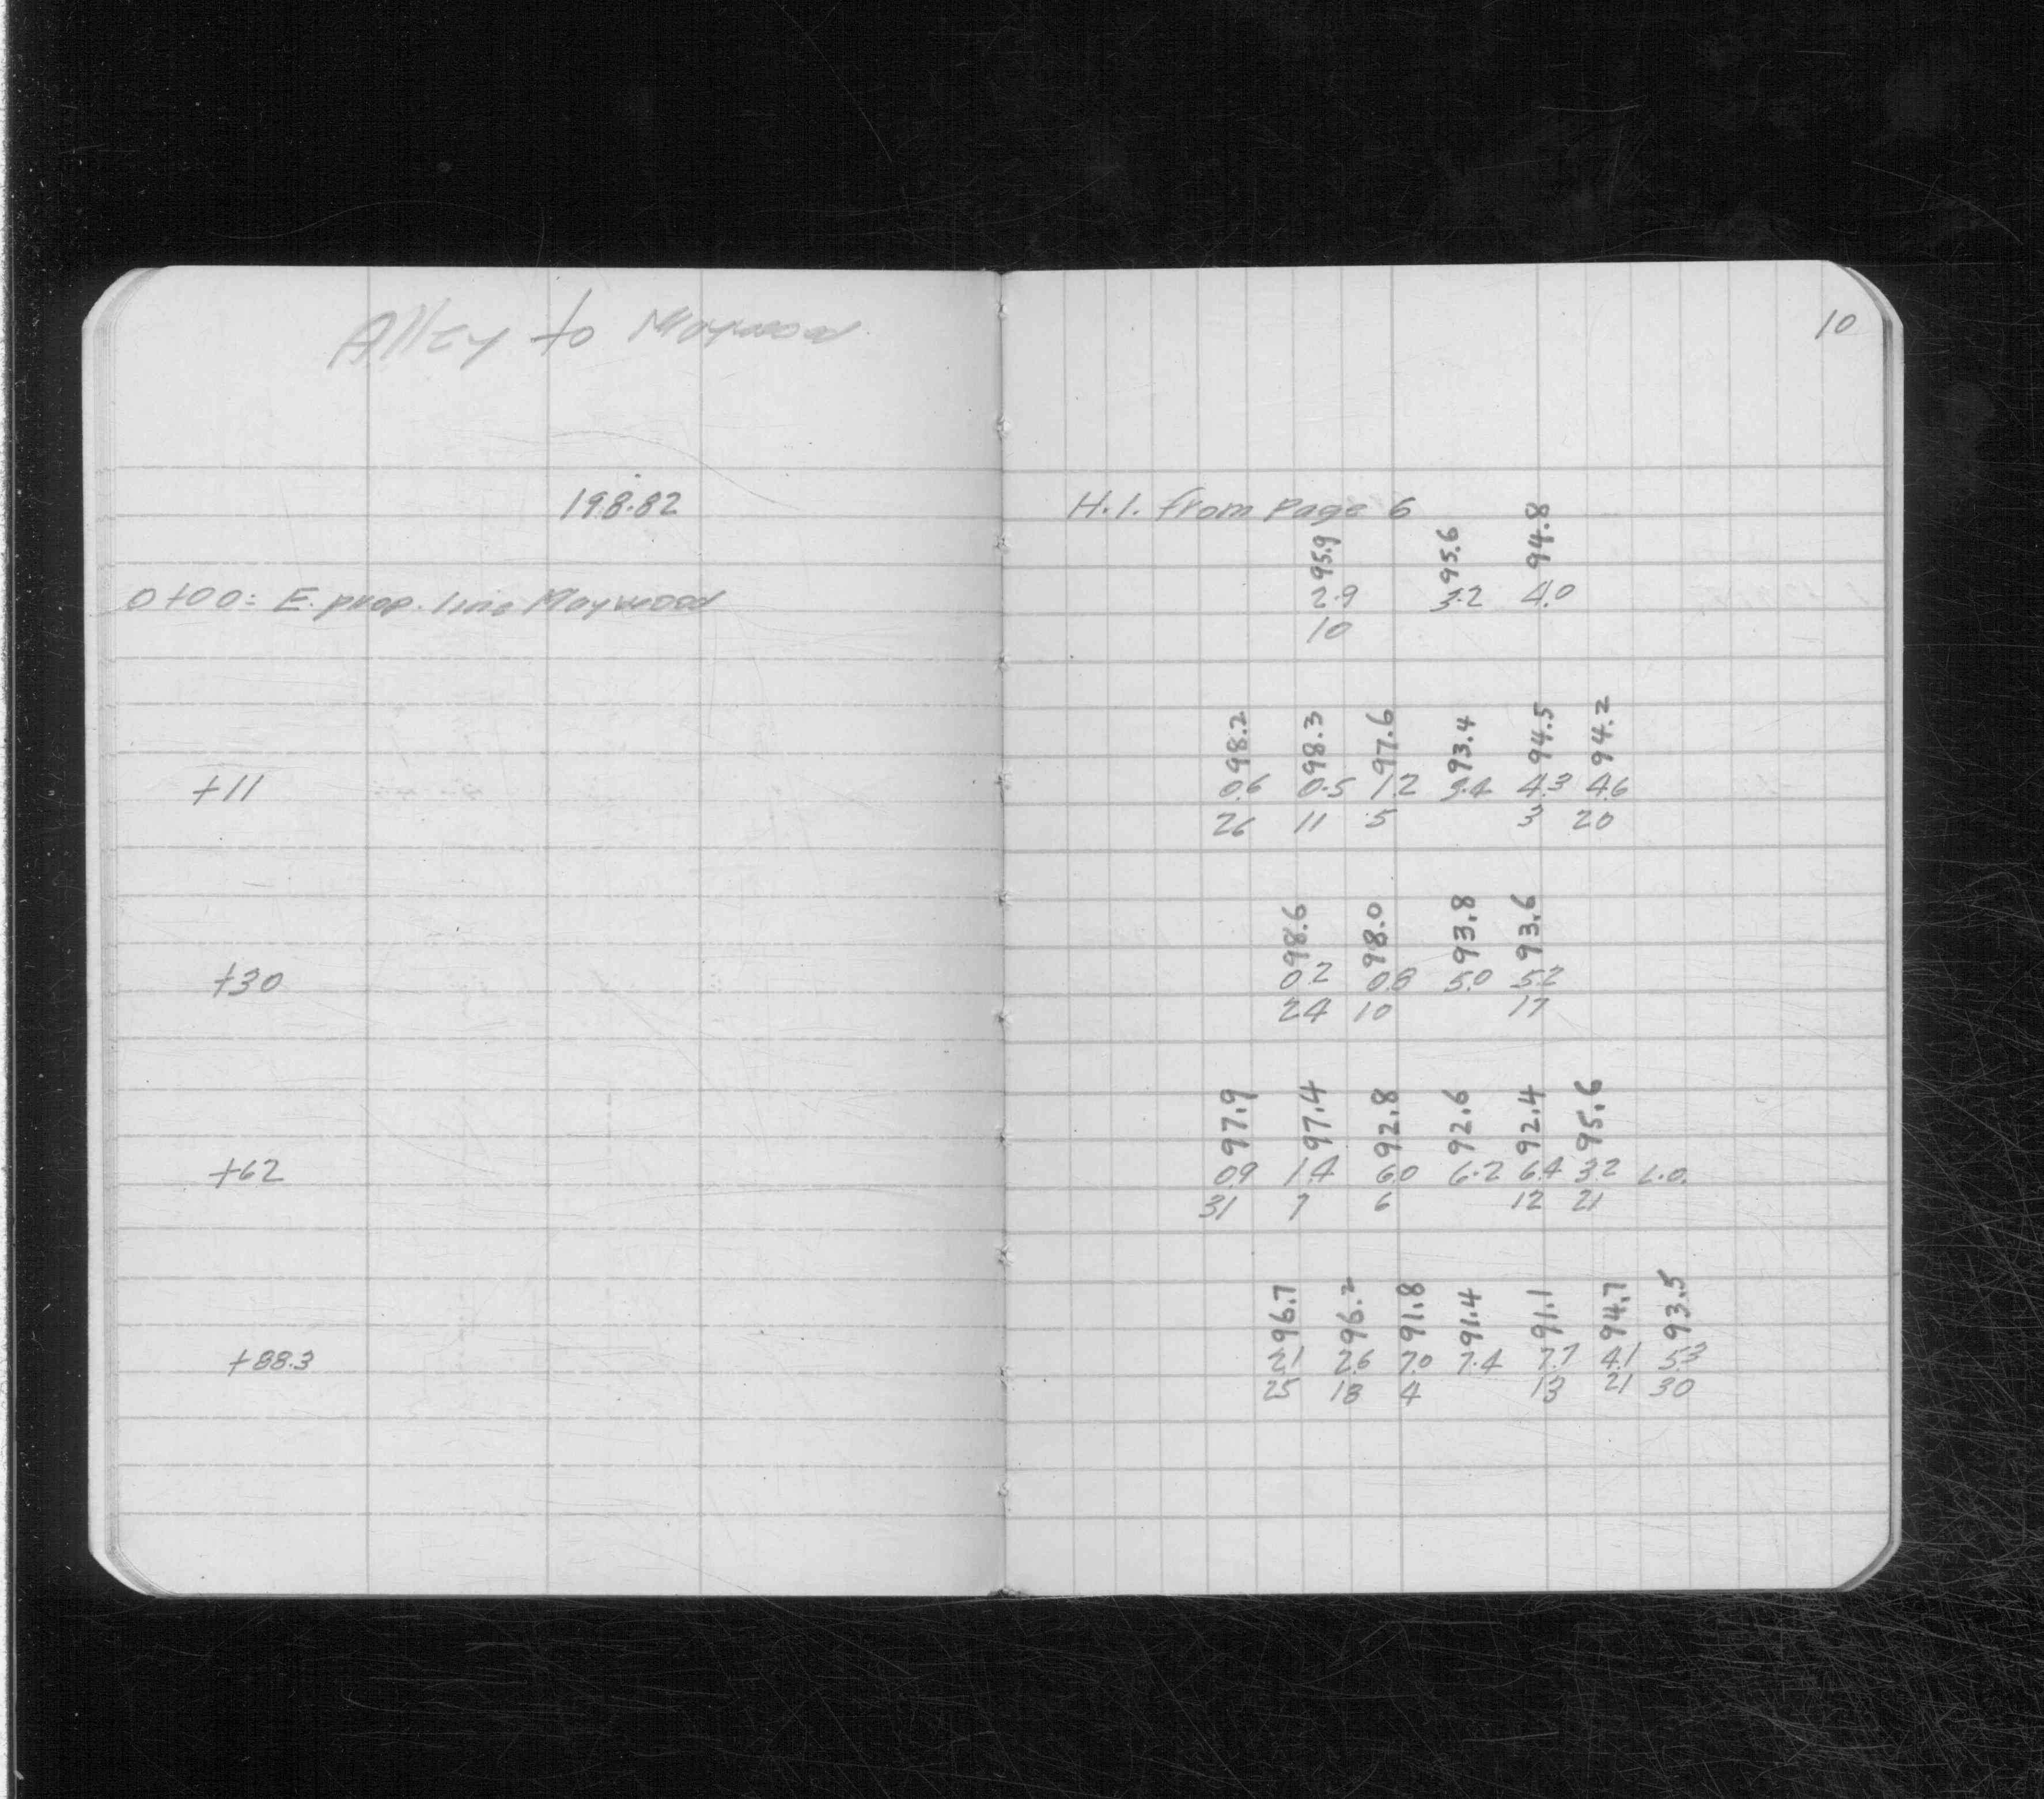 Alley to Maywood
10
198.82 H.I. from Page 6
95.9 95.6 94.8
0+00= E. prop. line Maywood 2.9 3.2 4.0
10
98.2 98.3 97.6 93.4 94.5 94.2
+11 0.6 0.5 1.2 5.4 4.3 4.6
26 11 5 3 20
98.6 98.0 93.8 93.6
+30 0.2 0.8 5.0 5.2
24 10 17
97.9 97.4 92.8 92.6 92.4 95.6
+62 0.9 1.4 6.0 6.2 6.4 3.2 L.O.
31 7 6 12 21
96.7 96.2 91.8 91.4 91.1 94.7 93.5
+88.3 2.1 2.6 7.0 7.4 7.7 4.1 5.3
25 18 4 13 21 30